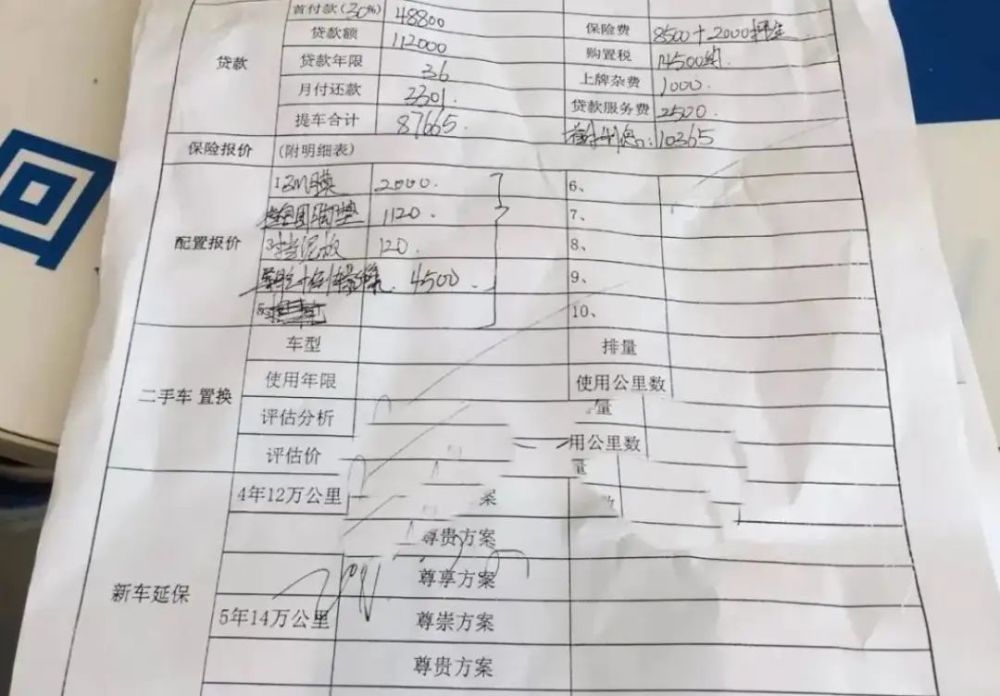 首付款(30%) 48800
贷款
贷款额 112000
贷款年限 36
月付还款 3301.
提车合计 87665.
保险费 8500+2000押金
购置税 14500纳.
上牌杂费 1000.
贷款服务费 2500.
10365
保险报价 (附明细表)
配置报价
1.3M膜 2000.
全包围脚垫 1120.
3挡泥板 120.
4500.
6、
7、
8、
9、
10、
二手车 置换
车型 排量
使用年限 使用公里数
评估分析 量
评估价 用公里数
量
新车延保
4年12万公里
尊贵方案
尊享方案
5年14万公里 尊崇方案
尊贵方案